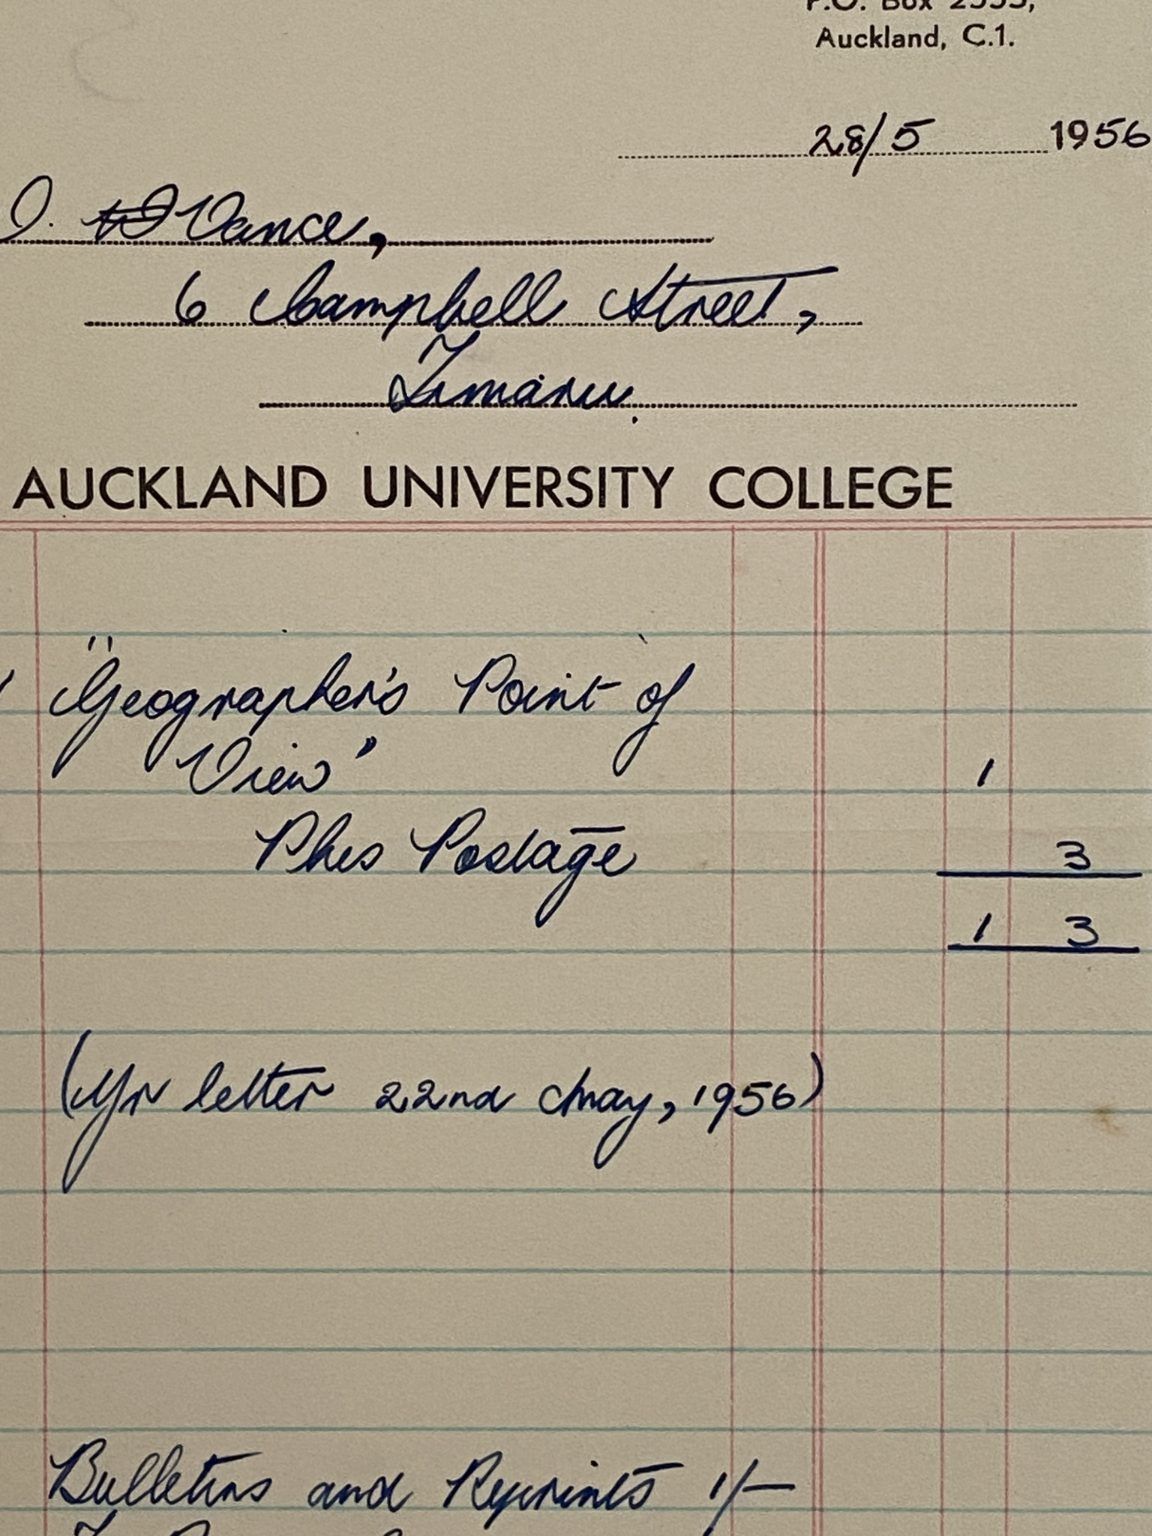 Auckland, C.1.
28/5 1956
Vance,
6 Campbell Street,
Timaru.
AUCKLAND UNIVERSITY COLLEGE
"Geographer's Point of
View" 1
Plus Postage 3
1 3
(Yr letter 22nd May, 1956)
Bulletins and Reprints 1/-